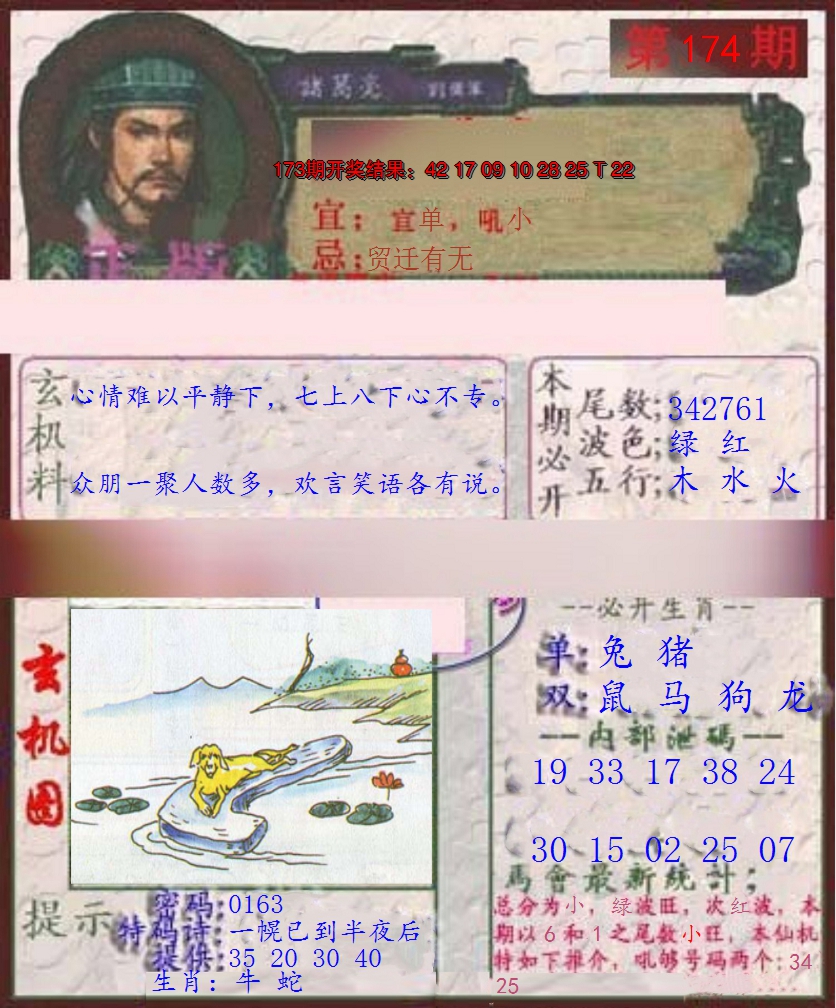 第 174 期
諸葛亮
173期开奖结果：42 17 09 10 28 25 T 22
宜：宜单，吼小
忌：贸迁有无
正版
玄机料
心情难以平静下，七上八下心不专。
众朋一聚人数多，欢言笑语各有说。
本期必开
尾数;342761
波色;绿 红
五行;木 水 火
玄机图
--必开生肖--
单:兔 猪
双:鼠 马 狗 龙
——内部泄碼——
19 33 17 38 24
30 15 02 25 07
馬會最新统計;
总分为小，绿波旺，次红波，本
期以6和1之尾数小旺，本仙机
特如下推介，吼够号码两个:34
25
提示
密码:0163
特码诗:一幌已到半夜后
提供:35 20 30 40
生肖：牛 蛇